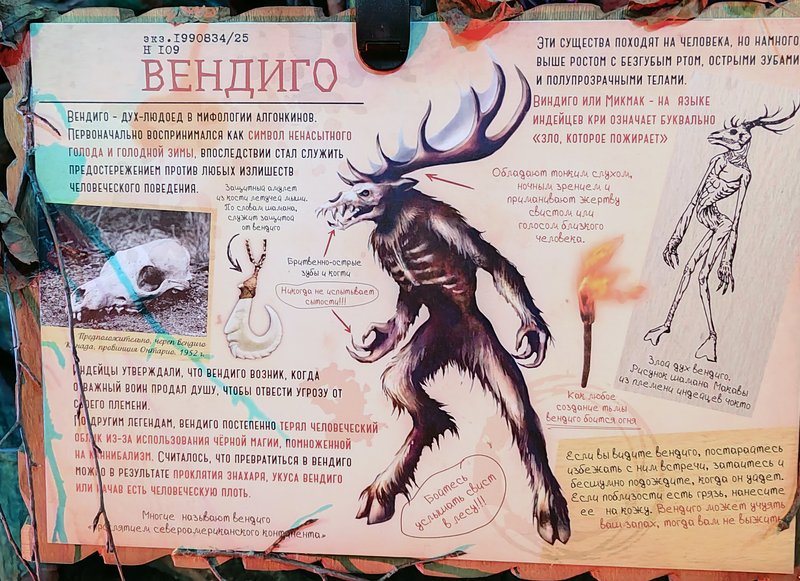 экз.1990834/25
Н 109
ВЕНДИГО
Вендиго - дух-людоед в мифологии алгонкинов.
Первоначально воспринимался как символ ненасытного
голода и голодной зимы, впоследствии стал служить
предостережением против любых излишеств
человеческого поведения.
Защитный амулет
из кости летучей мыши.
По словам шамана,
служит защитой
от вендиго
Предположительно, череп вендиго
Канада, провинция Онтарио, 1952 г.
Бритвенно-острые
зубы и когти
Никогда не испытывает
сытости!!!
Индейцы утверждали, что вендиго возник, когда
отважный воин продал душу, чтобы отвести угрозу от
своего племени.
По другим легендам, вендиго постепенно терял человеческий
облик из-за использования чёрной магии, помноженной
на каннибализм. Считалось, что превратиться в вендиго
можно в результате проклятия знахаря, укуса вендиго
или начав есть человеческую плоть.
Многие называют вендиго
«проклятием североамериканского континента»
Эти существа походят на человека, но намного
выше ростом с безгубым ртом, острыми зубами
и полупрозрачными телами.
Виндиго или Микмак - на языке
индейцев кри означает буквально
«зло, которое пожирает»
Обладают тонким слухом,
ночным зрением и
приманивают жертву
свистом или
голосом близкого
человека.
Злой дух вендиго.
Рисунок шамана Макавы
из племени индейцев чокто
Как любое
создание тьмы
вендиго боится огня
Бойтесь
услышать свист
в лесу!!!
Если вы видите вендиго, постарайтесь
избежать с ним встречи, затаитесь и
бесшумно подождите, когда он уйдет.
Если поблизости есть грязь, нанесите
ее на кожу. Вендиго может учуять
ваш запах, тогда вам не выжить